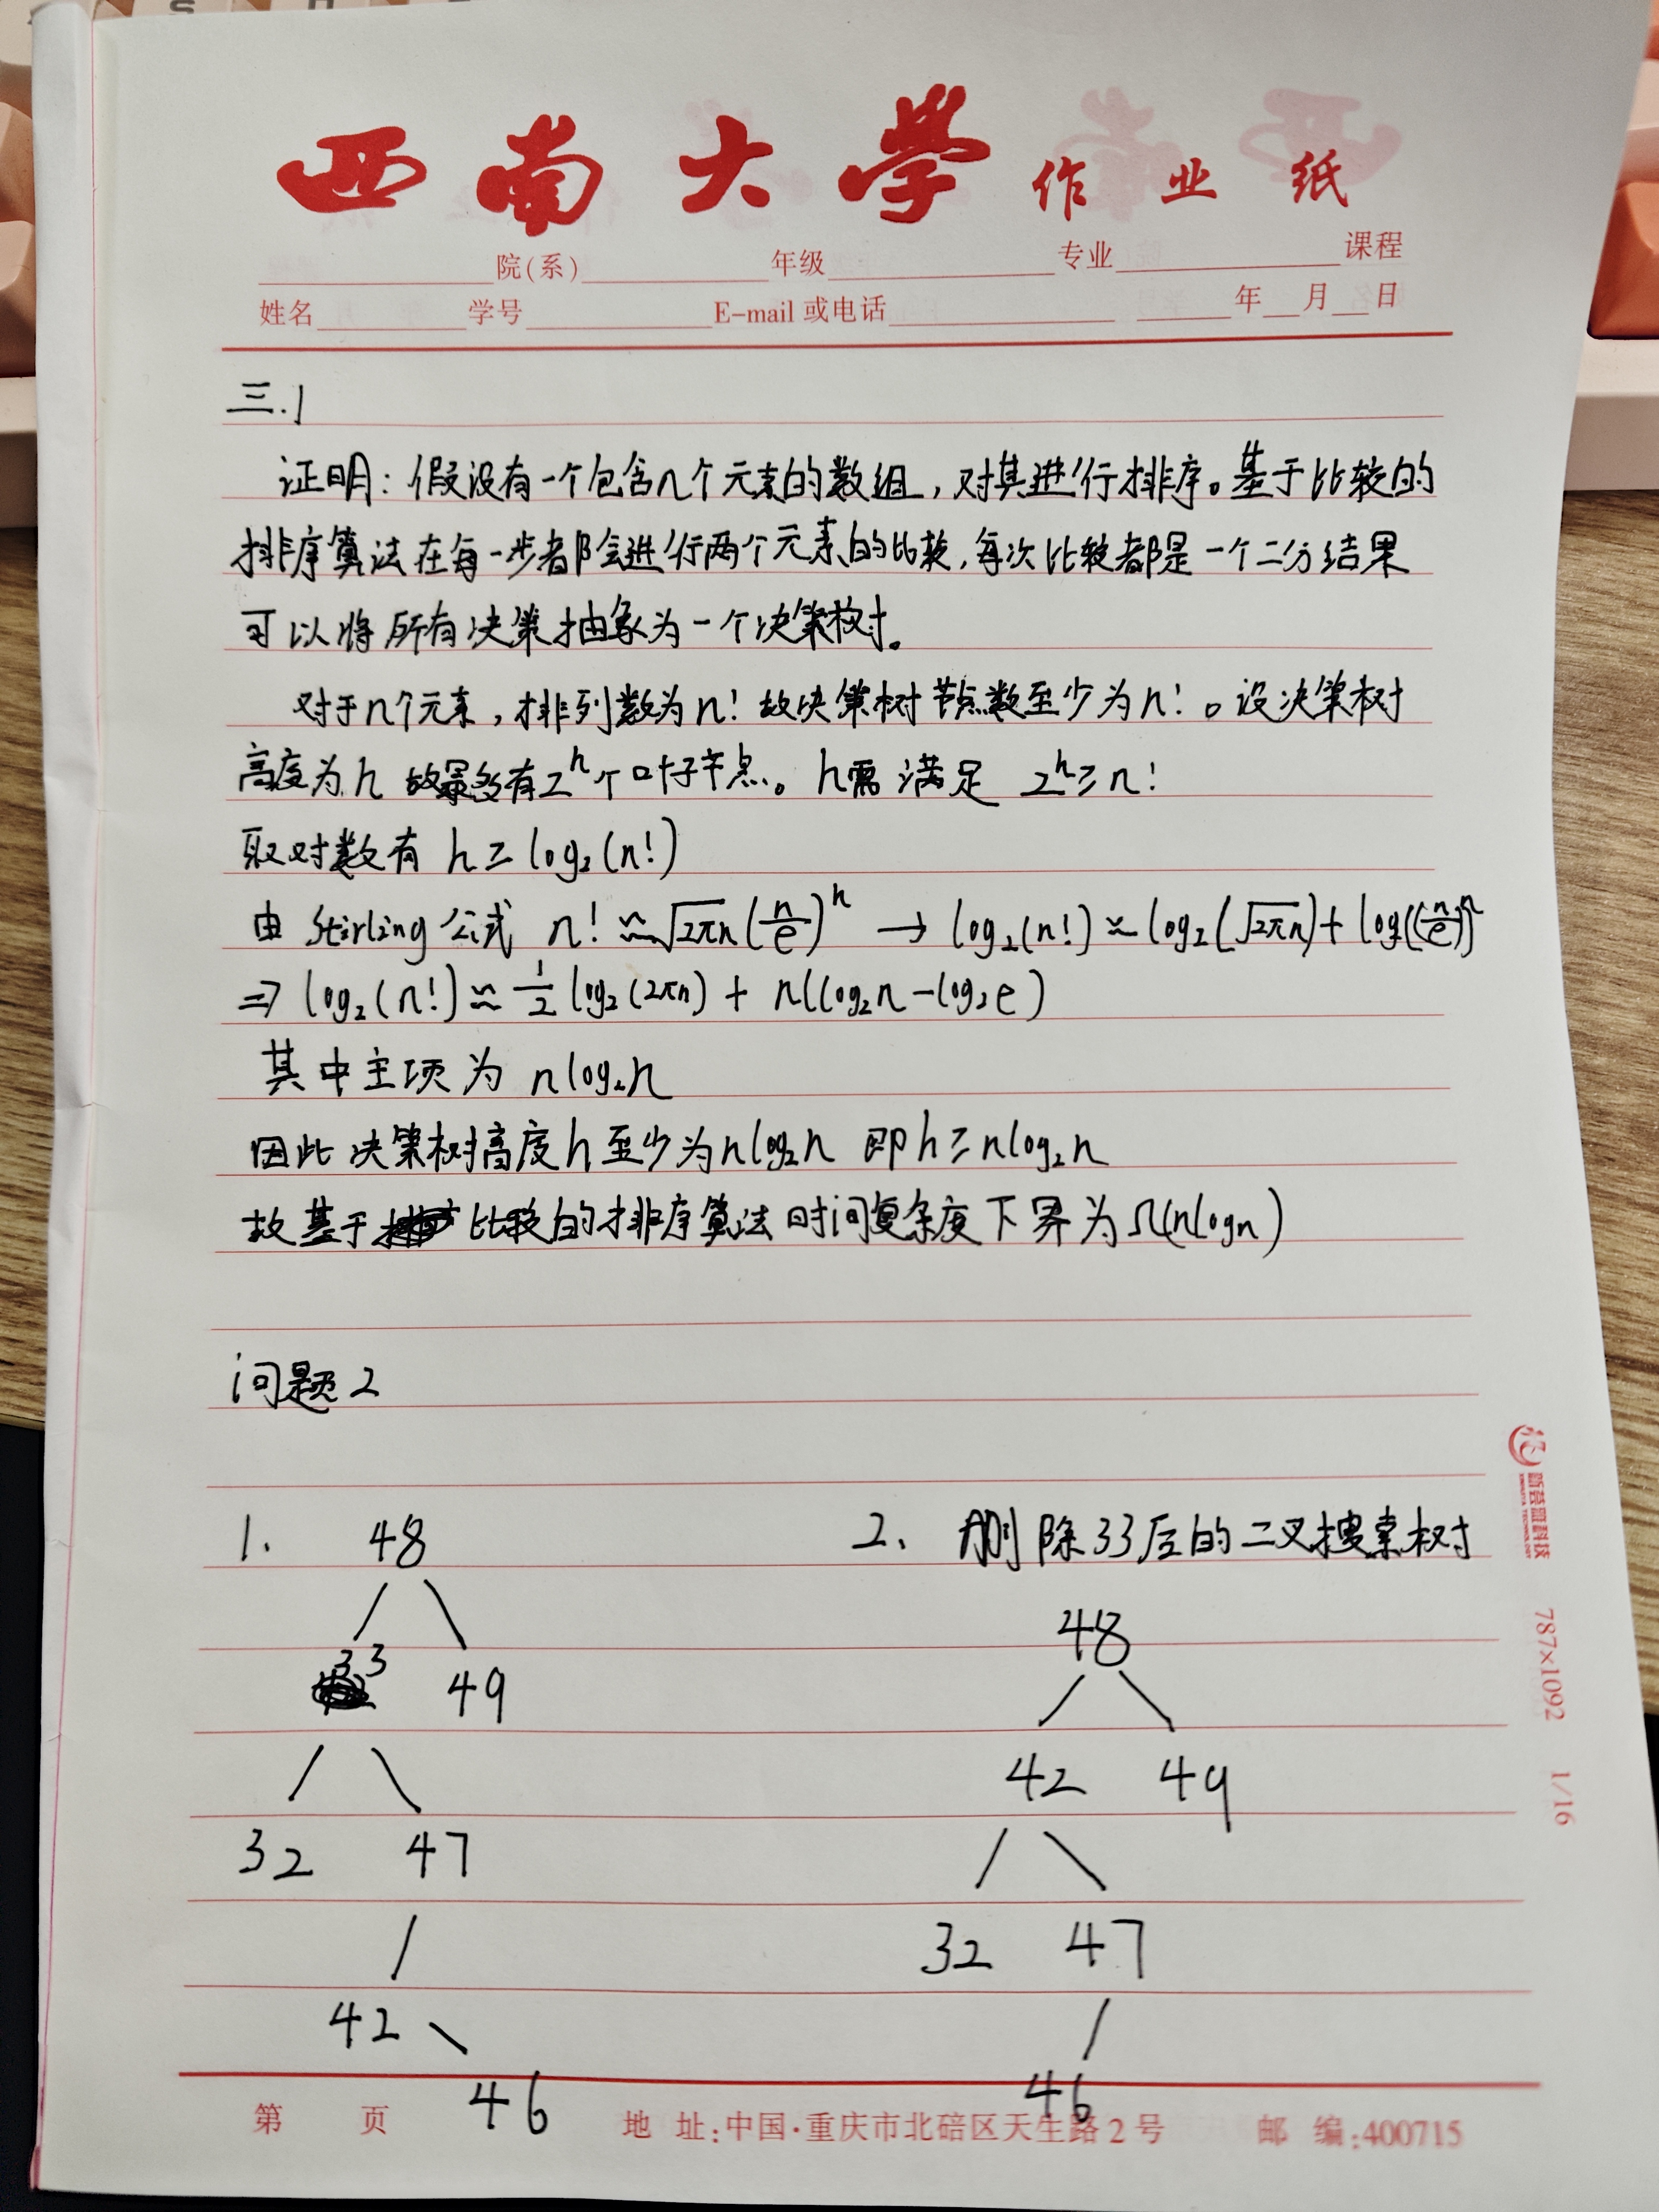 西南大学作业纸
院(系) 年级 专业 课程
姓名 学号 E-mail 或电话 年 月 日
三.1
证明：假设有一个包含n个元素的数组，对其进行排序。基于比较的
排序算法在每一步都会进行两个元素的比较，每次比较都是一个二分结果
可以将所有决策抽象为一个决策树。
对于n个元素，排列数为n! 故决策树节点数至少为n!。设决策树
高度为h 故最多有2^h个叶子节点。h需满足 2^h≥n!
取对数有 h≥log₂(n!)
由 Stirling 公式 n!≈√2πn(n/e)^n → log₂(n!)≈log₂(√2πn)+log₂((n/e)^n)
⇒ log₂(n!)≈1/2 log₂(2πn)+n(log₂n-log₂e)
其中主项为 nlog₂n
因此决策树高度h至少为nlog₂n 即h≥nlog₂n
故基于比较的排序算法时间复杂度下界为Ω(nlogn)
问题2
1. 48
33 49
32 47
42
46
2、删除33后的二叉搜索树
48
42 49
32 47
46
第 页 地 址:中国·重庆市北碚区天生路2号 邮 编:400715
787×1092 1/16